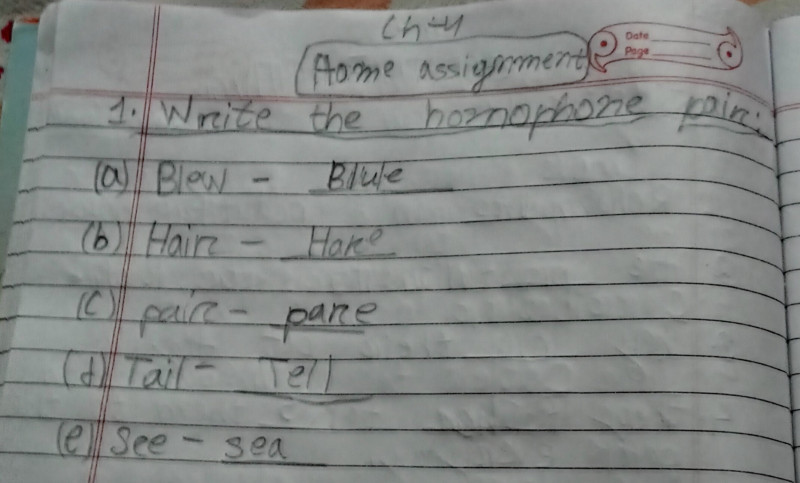 Ch-4
Home assignment
Date
Page
1. Write the homophone pair:
(a) Blew - Blule
(b) Hair - Hare
(c) pair - pare
(d) Tail - Tell
(e) See - sea